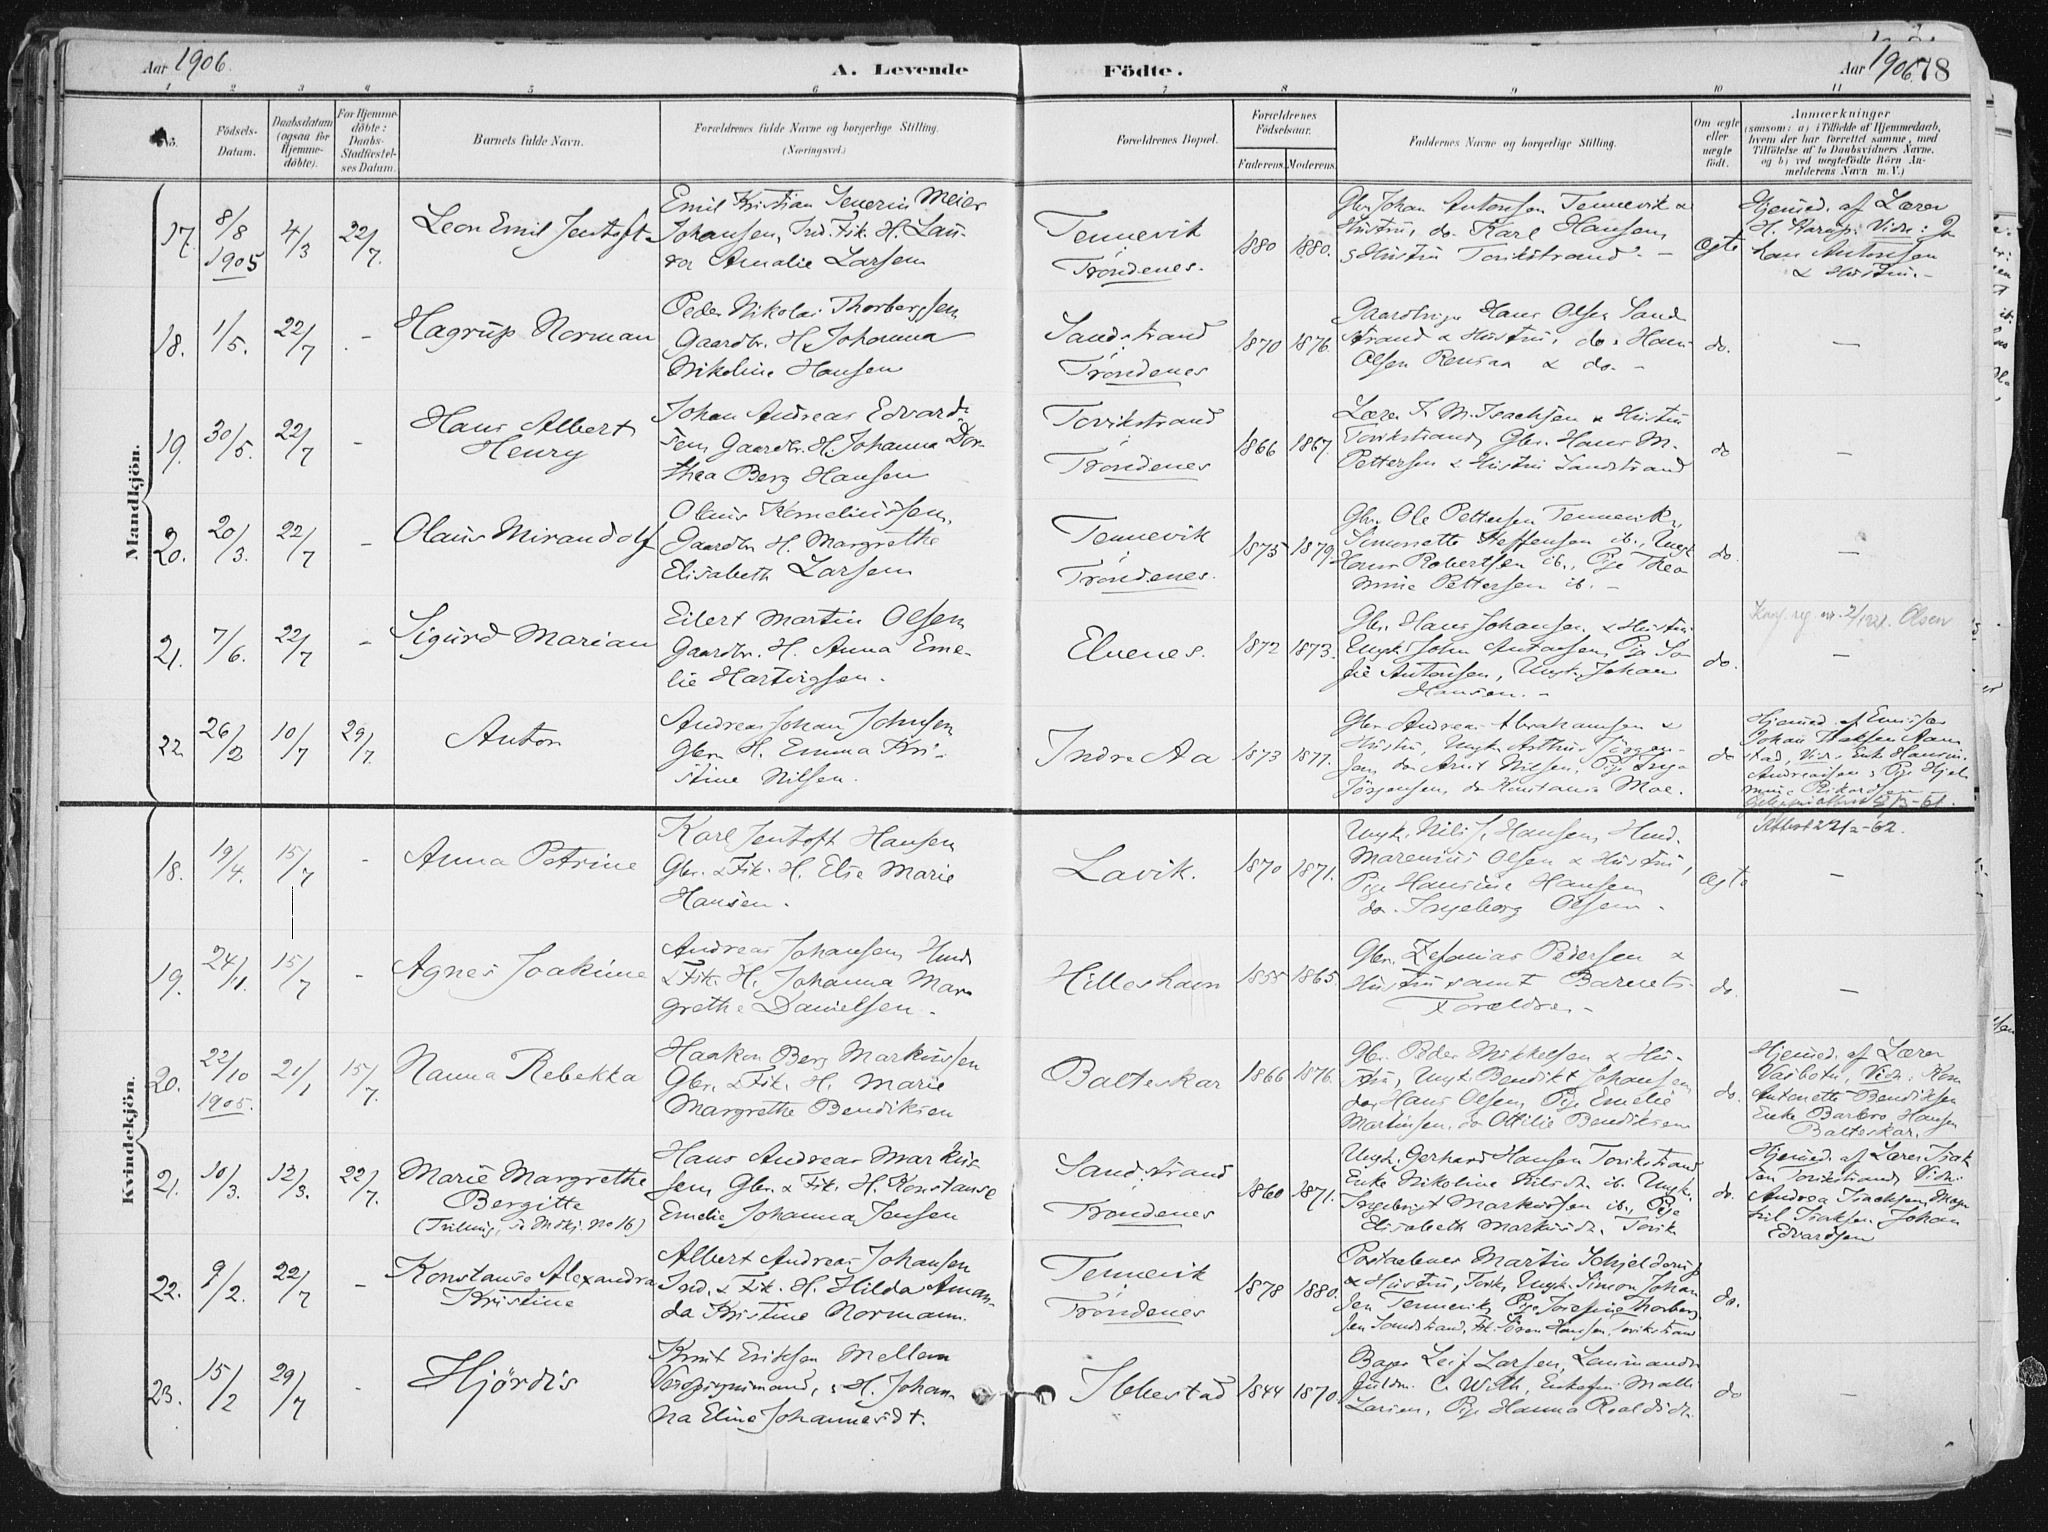 Aar 1906.
A. Levende Födte.
Aar 1906. 78
1 2 3 4 5 6 7 8 9 10 11
No.
Födsels-
Datum.
Daabsdatum
(ogsaa for
Hjemme-
döbte).
For Hjemme-
döbte:
Daabs-
Stadfæstel-
ses Datum.
Barnets fulde Navn.
Forældrenes fulde Navne og borgerlige Stilling.
(Næringsvei.)
Forældrenes Bopæl.
Forældrenes
Födselsaar.
Faderens. Moderens.
Faddernes Navne og borgerlige Stilling.
Om ægte
eller
uægte
födt.
Anmærkninger
(saasom: a) i Tilfælde af Hjemmedaab,
hvem der har forrettet samme, med
Tilföielse af to Daabsvidners Navne,
og b) ved uegtefödte Börn An-
melderens Navn m. V.)
Mandkjön.
17. 8/8 1905 4/3 22/7. Leon Emil Jentoft
Emil Kristian Severin Meier
Johansen, Ind. Fik. H. Lau-
ra Amalie Larsen
Tennevik
Trondenes.
1880 1880.
Gbr. Johan Antonsen Tennevik &
Hustru, do. Karl Hansen
& Hustru Torikstrand. -
ægte
Hjemmed. af Lærer
H. Karup. Vidn: Jo
han Antonsen
& Hustru. -
18. 1/5. 22/7 - Hagrup Norman
Peder Nikolai Thorbergsen
Gaardbr. H. Johanna
Nikoline Hansen
Sandstrand
Trondenes
1870 1876.
Gaardbruger Hans Olsen Sand
strand & Hustru, do. Hans
Olsen Rensaa & do. -
do. -
19. 30/5. 22/7 - Hans Albert
Henry
Johan Andreas Edvard
sen, Gaardbr. H. Johanna Dor
thea Berg Hansen
Torikstrand
Trondenes
1866 1867.
Lærer I. M. Isachsen & Hustru
Torikstrand, Gbr. Hans M.
Pettersen & Hustru Sandstrand
do -
20. 20/3. 22/7 - Olaus Mirandolf
Olaus Korneliussen,
Gaardbr. H. Margrethe
Elisabeth Larsen
Tennevik
Trondenes.
1875 1879.
Gbr. Ole Pettersen Tennevik,
Simonette Steffensen ib., Ungk.
Hans Robertsen ib., Pige Theo
mine Pettersen ib. -
do. -
21. 7/6. 22/7 - Sigurd Marian
Eilert Martin Olsen
Gaardbr. H. Anna Eme-
lie Hartvigsen.
Elvenes.
1872 1873.
Gbr. Hans Johansen & Hustru
Ungk. John Antonsen, Pige So
fie Antonsen, Ungk. Johan
Hansen. -
do. -
Olsen
22 26/2 10/7 29/7. Anton
Andreas Johan Johnsen
Gbr. H. Emma Kri-
stine Nilsen.
Indre Aa
1873 1877.
Gbr. Andreas Abrahamsen &
Hustru, Ungk. Arthur Jörgen-
sen, do Arnt Nilsen, Pige Inga
Jörgensen, do Konstanse Moe.
do
Hjemmed. af Emissær
Johan Isaksen Aan
stad, Vidn: Enke Hansine
Andreassen & Pige Hjel
mine Rikardsen
Kvindekjön.
18. 19/4. 15/7 - Anna Petrine
Karl Jentoft Hansen
Gbr. & Fik. H. Else Marie
Hansen.
Lavik.
1870 1871.
Ungk. Nils J. Hansen, Husd.
Marenius Olsen & Hustru,
Pige Hansine Hansen
do. Ingeborg Olsen.
ægte -
Attest 22/2-62.
19. 24/11. 15/7 - Agnes Joakime
Andreas Johansen, Husd.
& Fik. H. Johanna Mar
grethe Danielsen.
Hilleshavn
1855 1865.
Gbr. Zefanias Pedersen &
Hustru samt Barnets
Forældre -
do. -
20. 22/10 1905. 21/1 15/7. Nanna Rebekka
Haakon Berg Markussen
Gbr. & Fik. H. Marie
Margrethe Bendiksen
Balteskar
1866 1876.
Gbr. Peder Mikkelsen & Hu-
stru, Ungk. Bendikt Johansen
do, Hans Olsen, Pige Emelie
Martinsen, do Ottilie Bendiksen
do.
Hjemmed. af Lærer
Vasbotn, Vidn:
Antonette Bendiksen
Enke Barbro Hansen
Balteskar.
21. 10/3. 12/3. 22/7. Marie Margrethe
Bergitte
(Tvilling, se Mdkj. No 16)
Hans Andreas Markus
sen, Gbr. & Fik. H. Konstanse
Emelie Johanna Jensen
Sandstrand
Trondenes
1860 1871.
Ungk. Gerhard Hansen Torikstrand
Enke Nikoline Nilsdr. ib. Ungk.
Ingebrigt Markussen ib., Pige
Elisabeth Markusdr. Torik
do.
Hjemmed. af Lærer Isak
sen Torikstrand, Vidn:
Andrea Isachsen, Magn
hil Isaksen, Johan
Edvardsen
22. 9/2. 22/7 - Konstanse Alexandra
Kristine
Albert Andreas Johansen
Ind. & Fik. H. Hilda Aman-
da Kristine Normann.
Tennevik
Trondenes
1878 1880.
Postaabner Martin Schjelderup
& Hustru, Torik, Ungk. Simon Johan
sen Tennevik, Pige Josefine Thorberg
sen Sandstrand, Fik. Sören Hansen, Torikstrand
do.
23. 15/2 29/7 - Hjördis
Knut Eriksen Mellem
H. Johan
na Eline Johannesdt.
Ibbestad
1844 1870
Bager Leif Larsen, Lensmandsfuldm.
C. With, Enkefru Malli
Larsen, Pige Hanna Roaldsdt.
do -